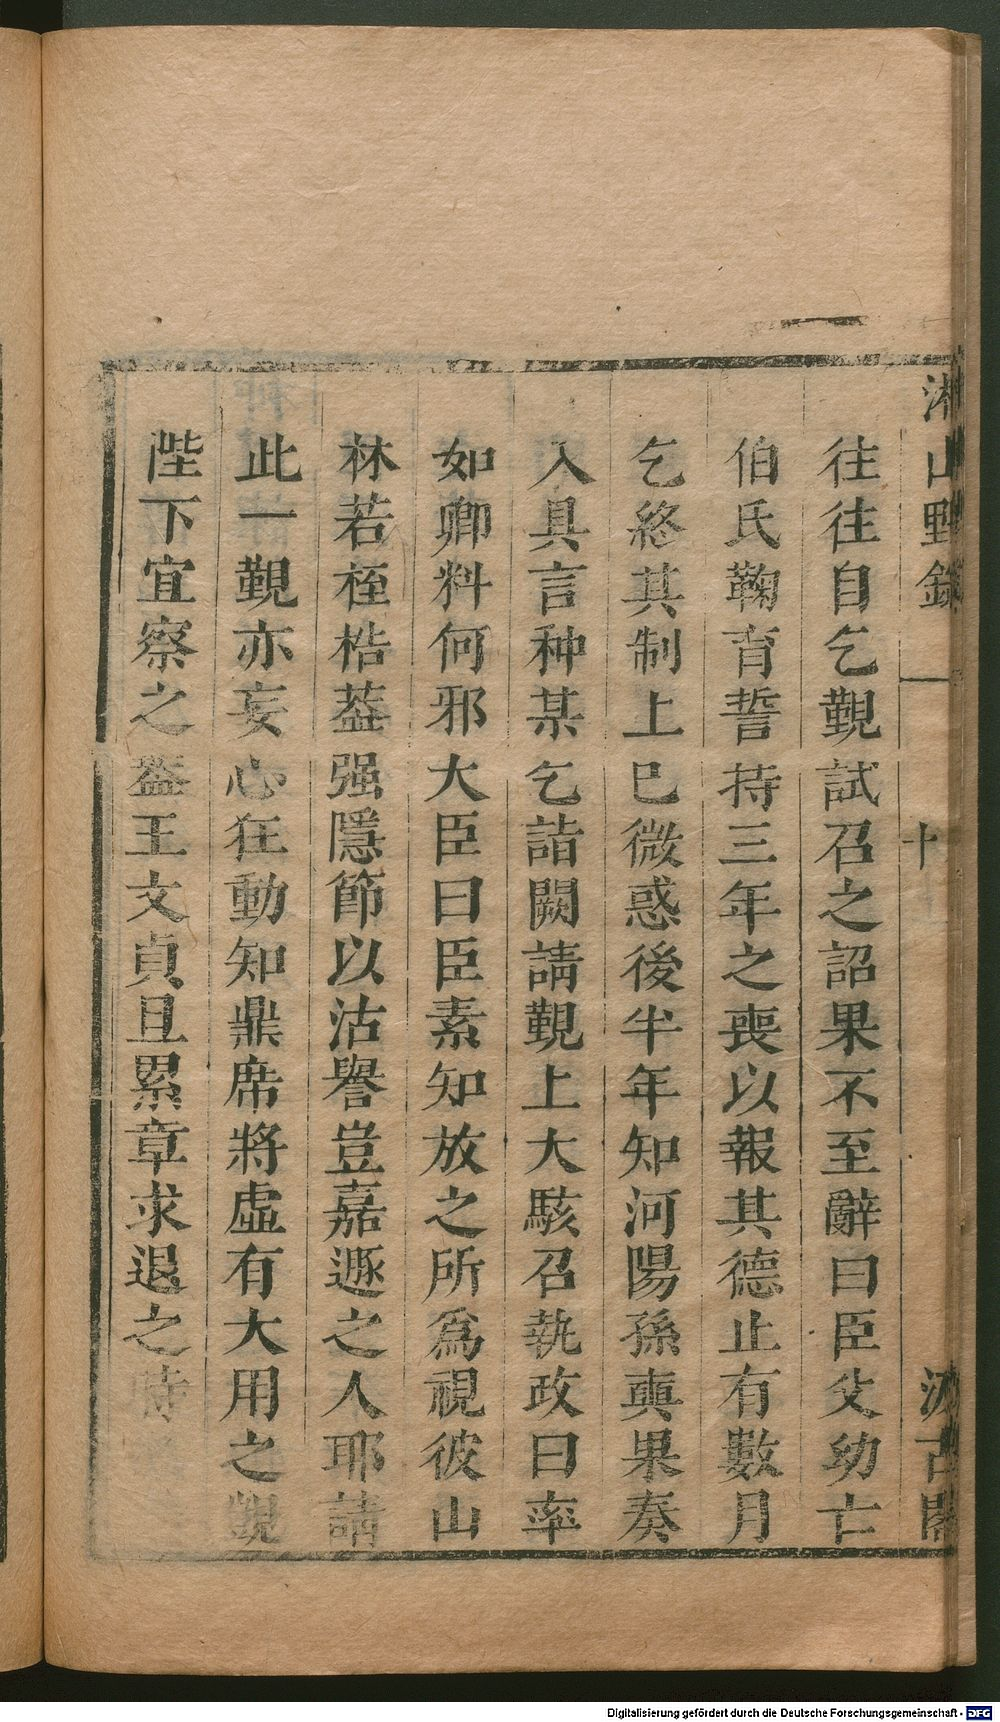 湘山野錄 十 汲古閣
往往自乞覲試召之詔果不至辭曰臣父幼亡
伯氏鞠育誓持三年之喪以報其德止有數月
乞終其制上巳微惑後半年知河陽孫奭果奏
入具言种某乞詣闕請覲上大駭召執政曰率
如卿料何邪大臣曰臣素知放之所爲視彼山
林若桎梏葢强隱節以沽譽豈嘉遯之人耶請
此一覲亦妄心狂動知鼎席將虛有大用之覬
陛下宜察之葢王文貞旦累章求退之時
Digitalisierung gefördert durch die Deutsche Forschungsgemeinschaft - DFG